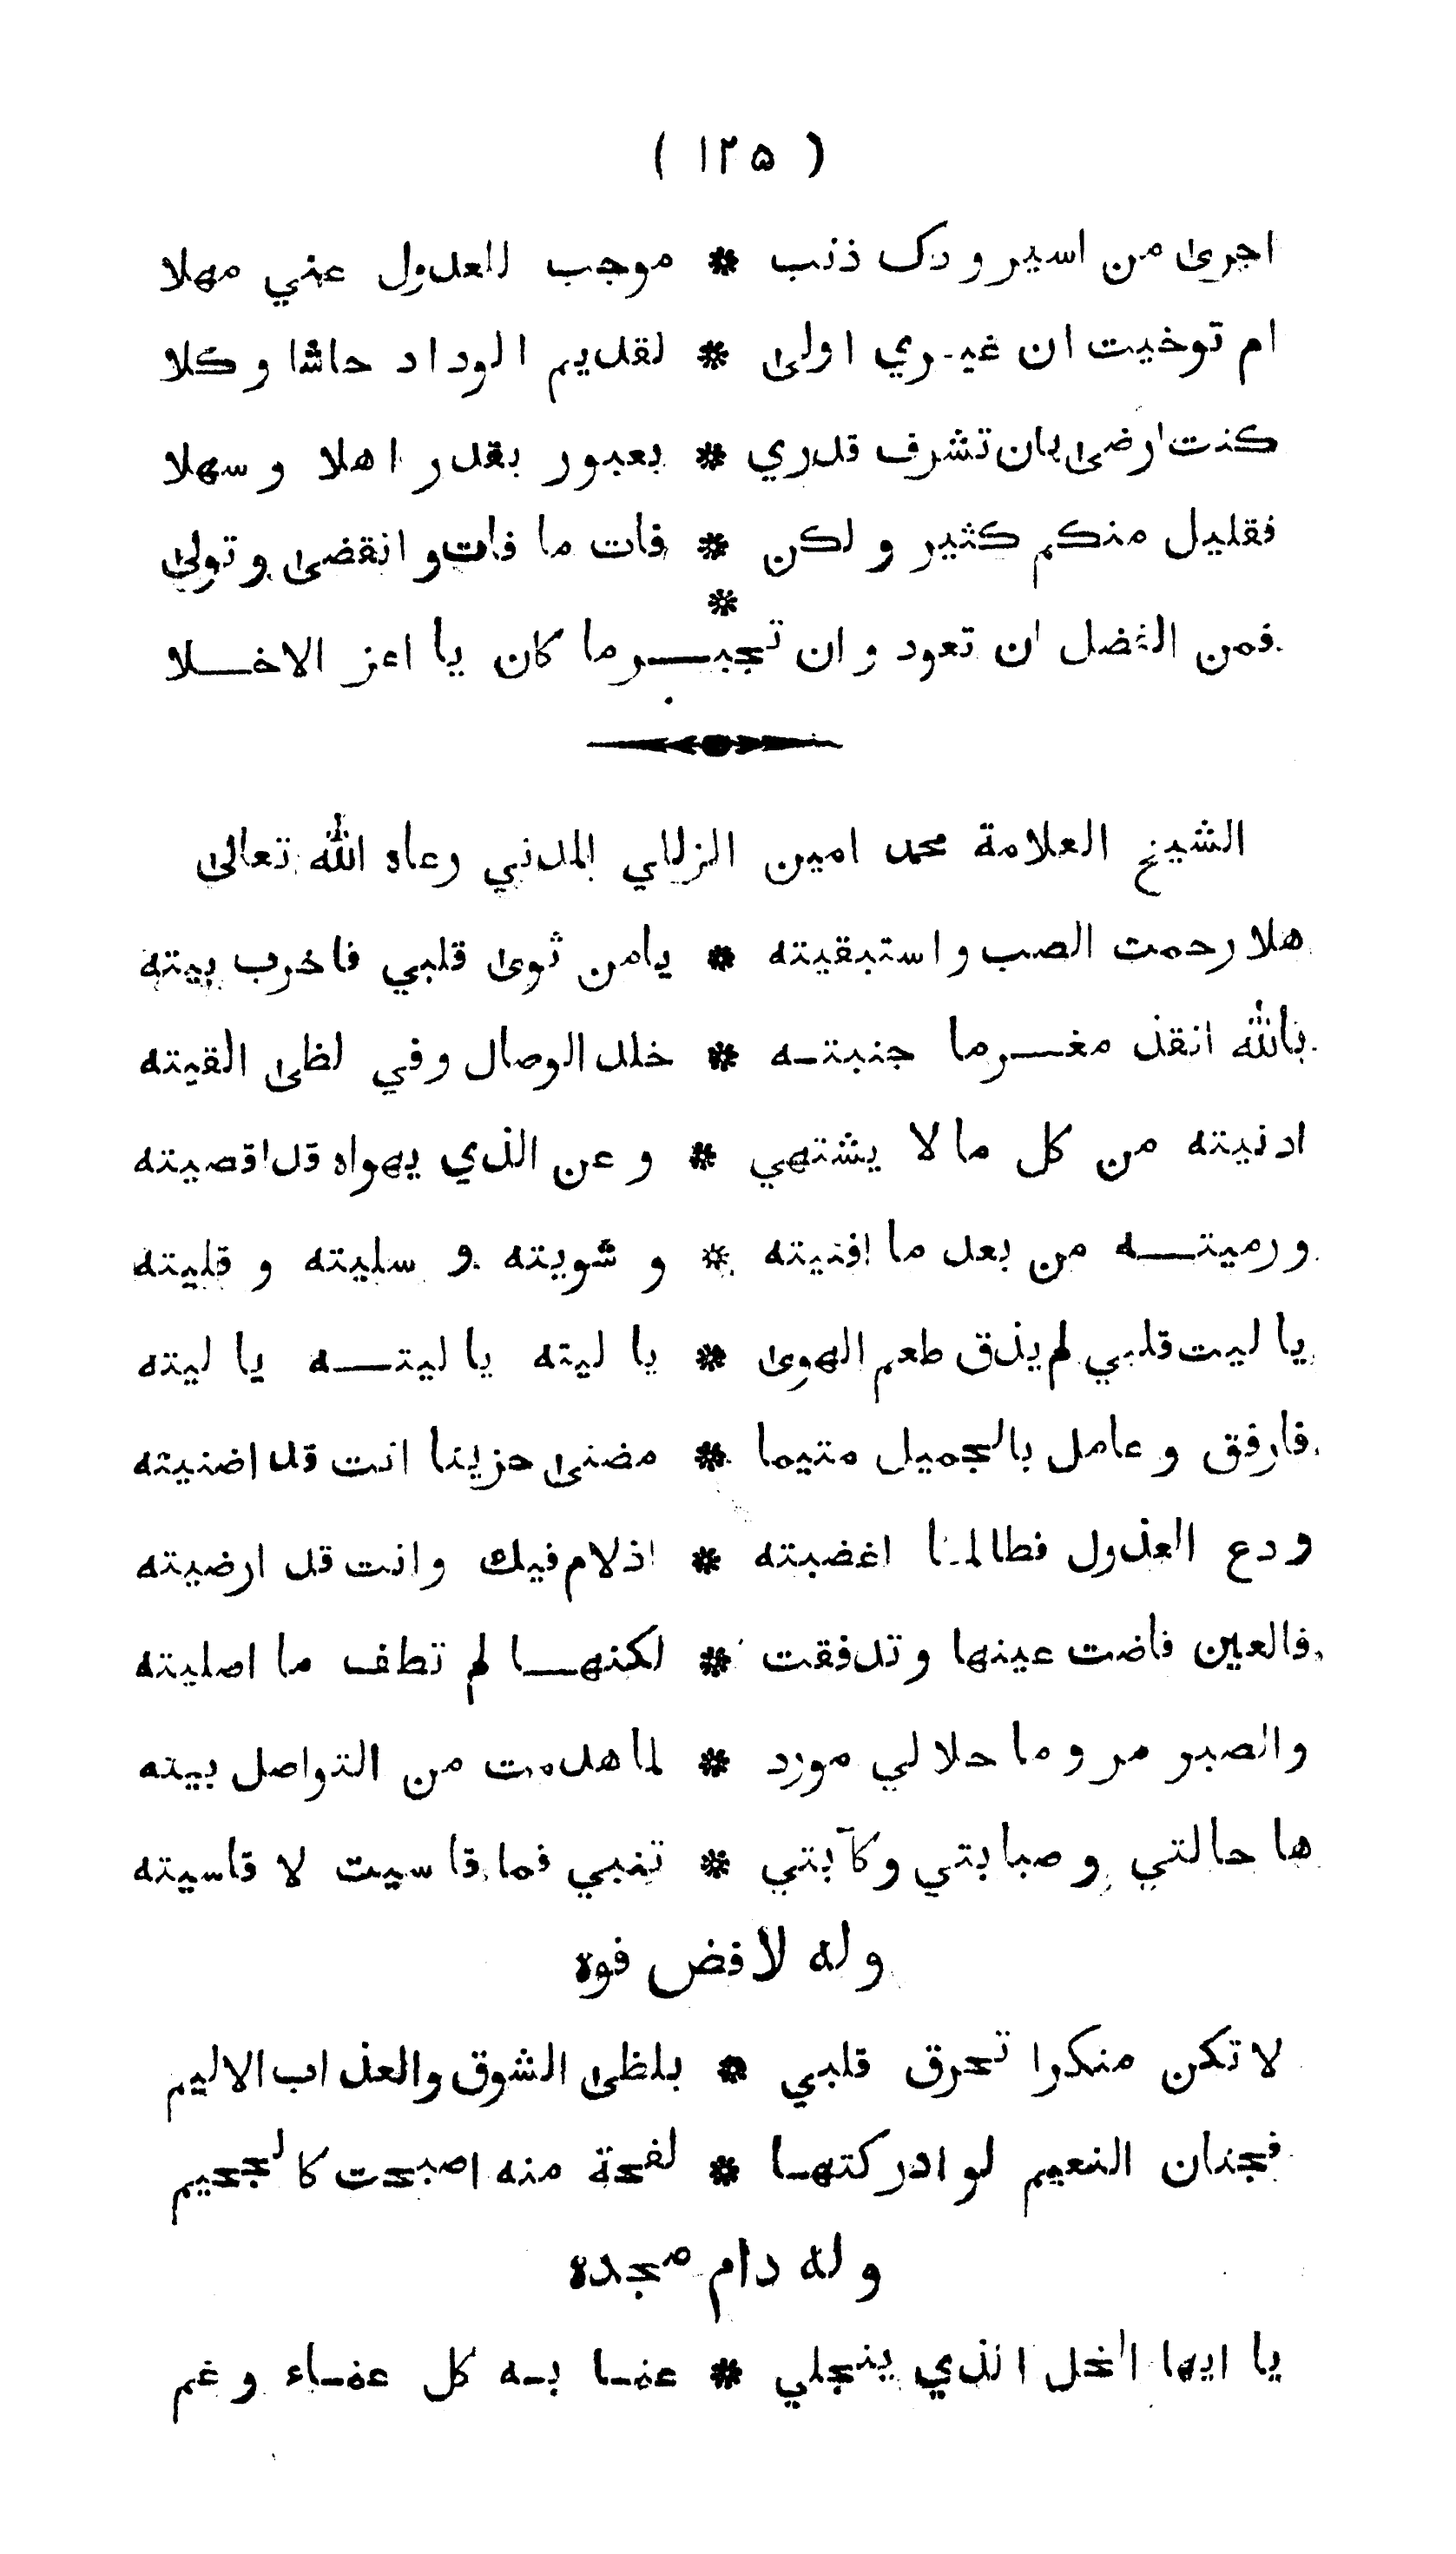 ( ١٢٥ )
اجرى من اسير ودك ذنب * موجب للعدول عني مهلا
ام توخيت ان غيري اولى * لقديم الوداد حاشا وكلا
كنت ارضى بان تشرف قدري * بعبور بقدر اهلا وسهلا
فقليل منكم كثير ولكن * فات ما فات وانقضى وتولى
فمن الفضل ان تعود وان تجبر ما * كان يا اعز الاخلا
الشيخ العلامة محمد امين الزللي المدني رعاه الله تعالى
هلا رحمت الصب واستبقيته * يامن ثوى قلبي فاخرب بيته
بالله انقذ مغرما جنبته * خلد الوصال وفي لظى القيته
ادنيته من كل مالا يشتهي * وعن الذي يهواه قد اقصيته
ورميته من بعد ما افنيته * وشويته وسليته وقليته
يا ليت قلبي لم يذق طعم الهوى * يا ليته يا ليته يا ليته
فارفق وعامل بالجميل متيما * مضنى حزينا انت قد اضنيته
ودع العذول فطالما اغضبته * اذلام فيك وانت قد ارضيته
فالعين فاضت عينها وتدفقت * لكنها لم تطف ما اصليته
والصبر مر وما حلالي مورد * لما هدمت من التواصل بيته
ها حالتي وصبابتي وكآبتي * تنبي فما قاسيت لا قاسيته
وله لافض فوه
لا تكن منكرا تحرق قلبي * بلظى الشوق والعذاب الاليم
فجنان النعيم لو ادركتها * لفحة منه اصبحت كالجحيم
وله دام مجده
يا ايها الخل الذي ينجلي * عنا به كل عناء وغم